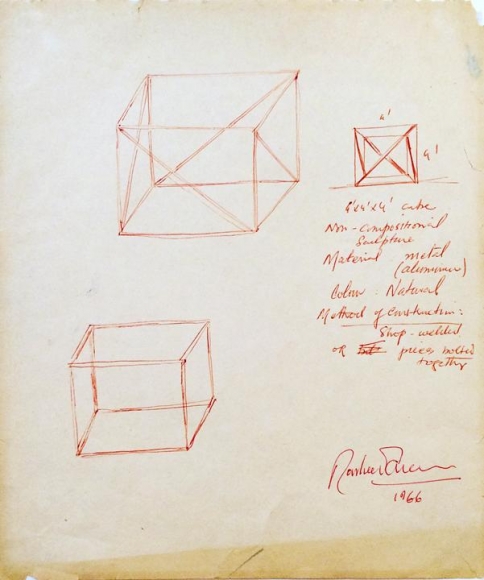 4'
4'
4'x4'x4' cube
Non-compositional
Sculpture
Material metal
(aluminium)
Colour - Natural
Method of construction:
Shop-welded
OR pieces bolted
together
Rasheed Araeen
1966